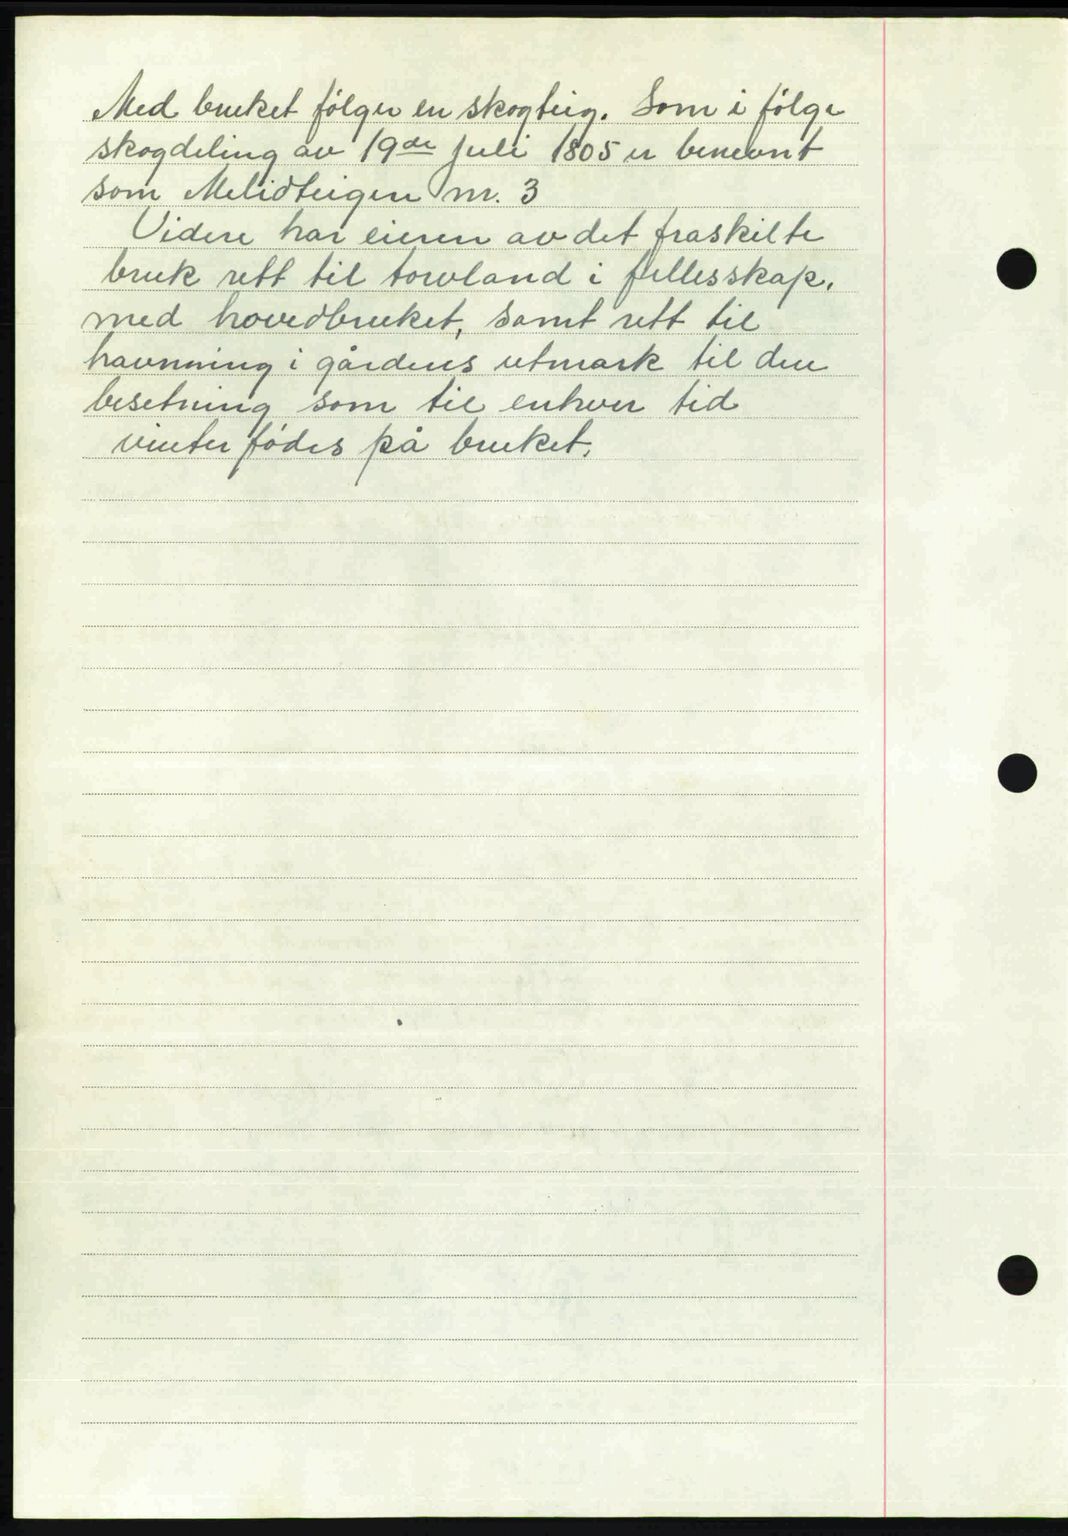 Med bruket følger en skogteig. Som i følge
skogdeling av 19de Juli 1805 er benevnt
som Melidteigen nr. 3
Videre har eieren av det fraskilte
bruk rett til torvland i fellesskap.
med hovedbruket, samt rett til
havnning i gårdens utmark til den
besetning som til enhver tid
vinterfødes på bruket.